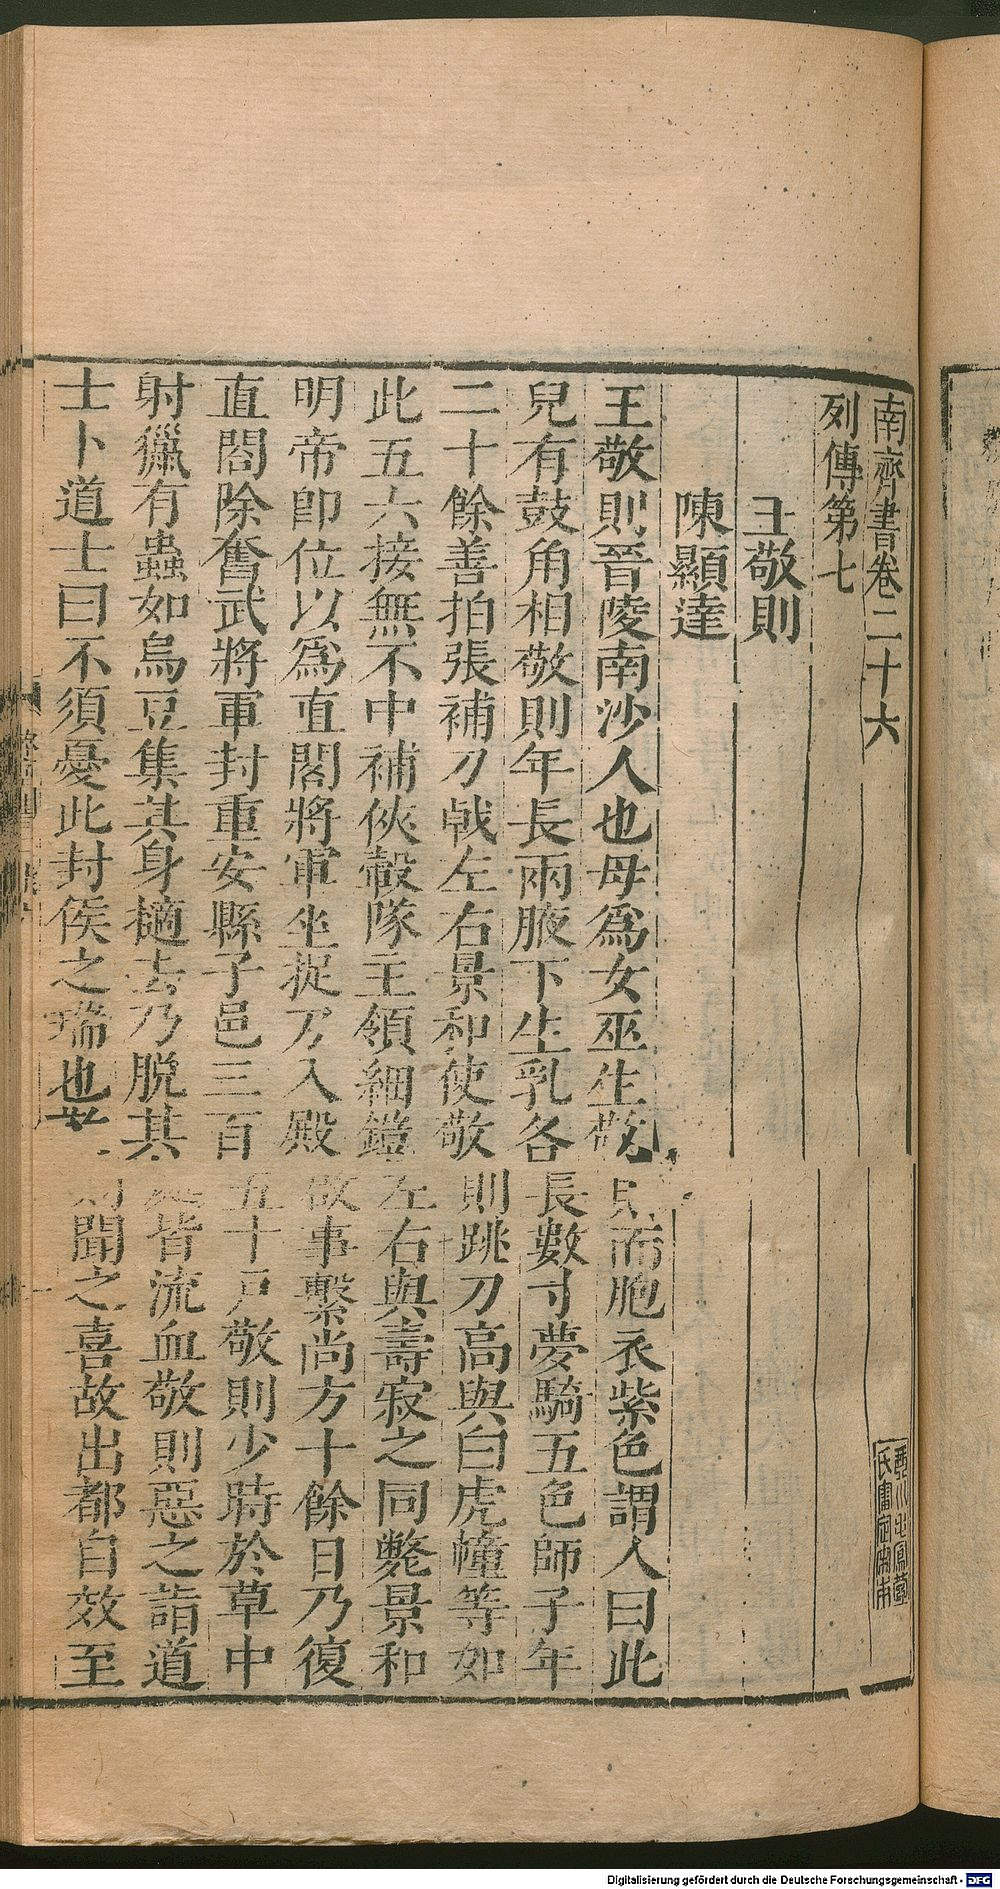 南齊書卷二十六
列傳第七
王敬則
陳顯達
王敬則晉陵南沙人也母爲女巫生敬則而胞衣紫色謂人曰此
兒有鼓角相敬則年長兩腋下生乳各長數寸夢騎五色師子年
二十餘善拍張補刀戟左右景和使敬則跳刀高與白虎幢等如
此五六接無不中補俠轂隊主領細鎧左右與壽寂之同斃景和
明帝卽位以爲直閤將軍坐捉刀入殿啟事繫尚方十餘日乃復
直閤除奮武將軍封重安縣子邑三百五十戶敬則少時於草中
射獵有蟲如烏豆集其身擿去乃脫其處皆流血敬則惡之詣道
士卜道士曰不須憂此封侯之瑞也敬則聞之喜故出都自效至
Digitalisierung gefördert durch die Deutsche Forschungsgemeinschaft - DFG